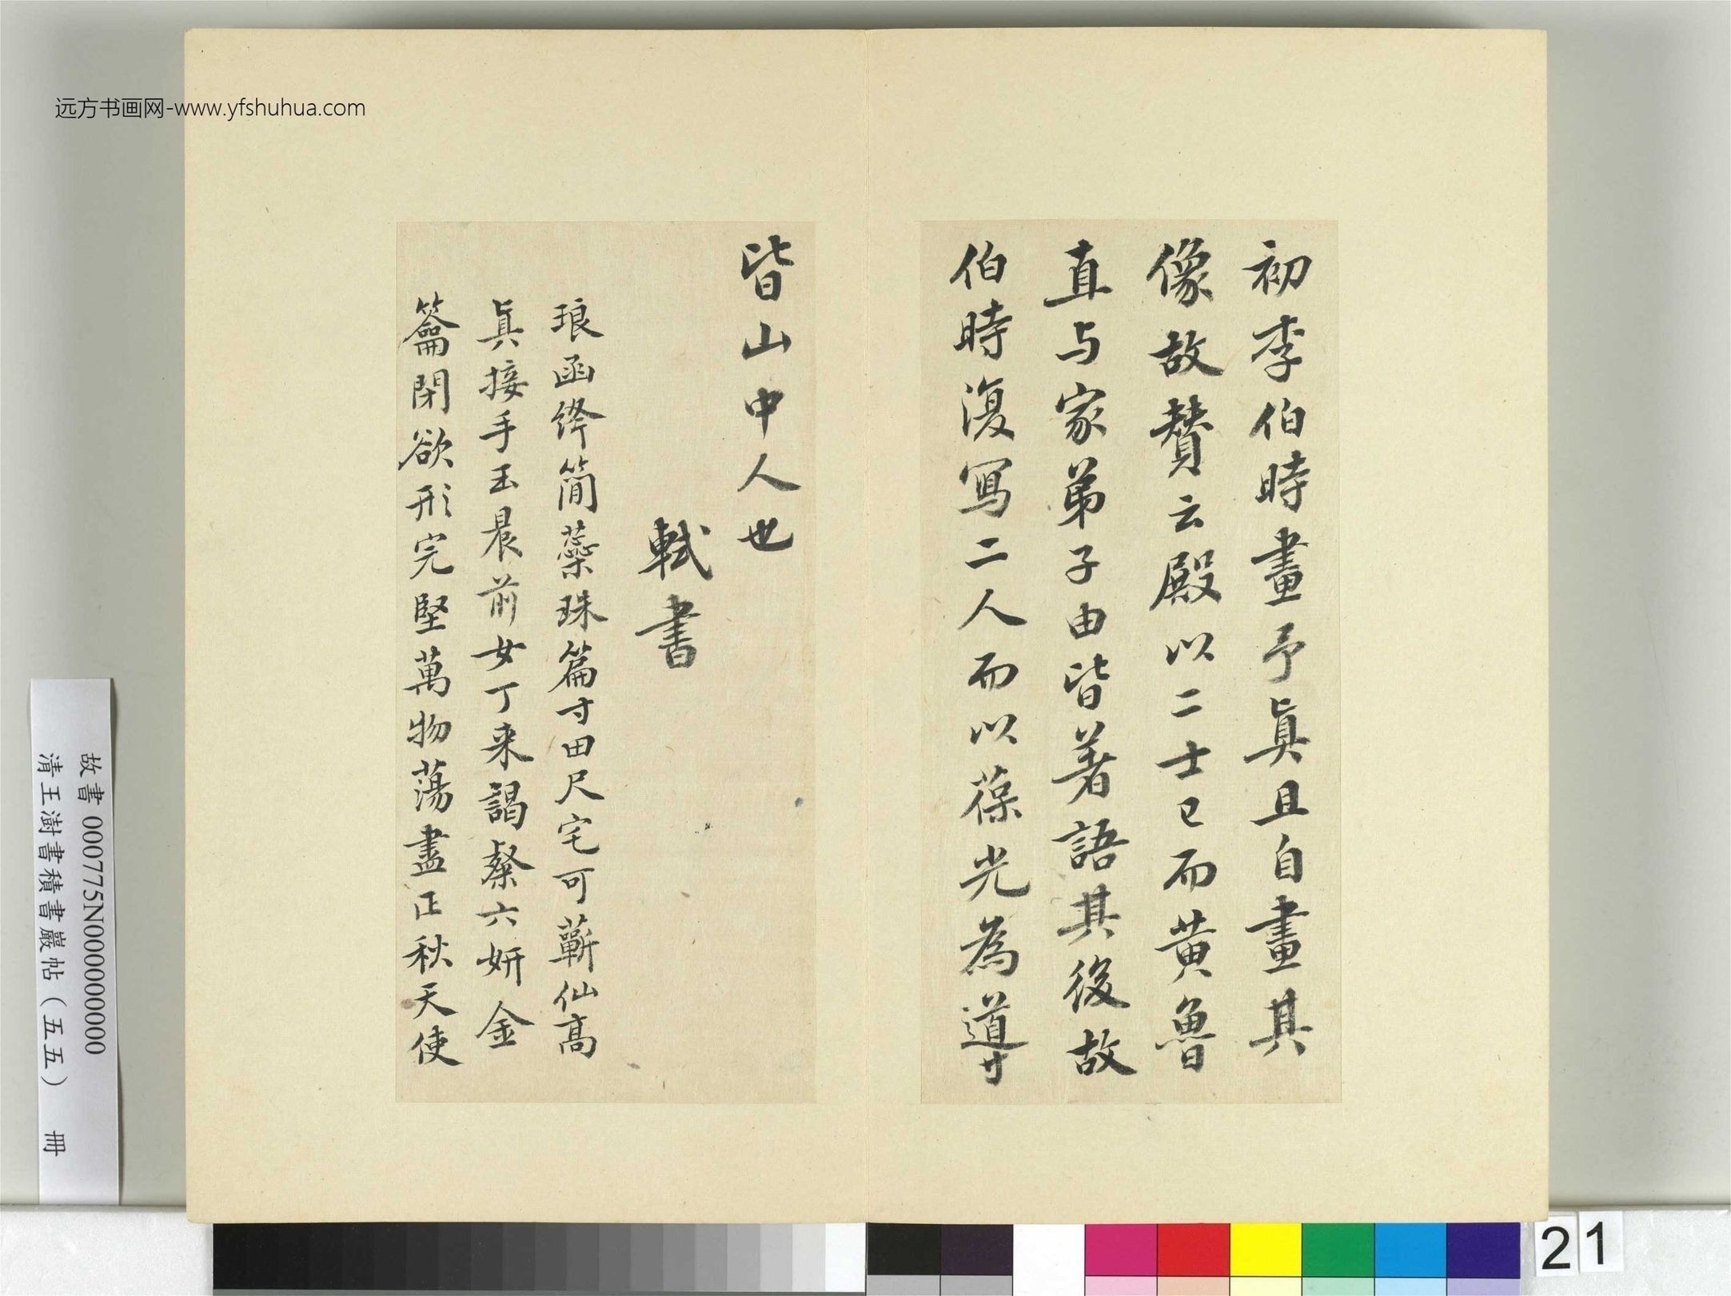 远方书画网-www.yfshuhua.com
初李伯時畫予眞且自畫其
像故贊云殿以二士已而黄魯
直与家弟子由皆著語其後故
伯時復寫二人而以葆光為導
皆山中人也
軾書
琅函絳簡蘂珠篇寸田尺宅可蘄仙高
眞接手玉晨前女丁来謁粲六妍金
籥閉欲形完堅萬物蕩盡正秋天使
故書000775N000000000
清王澍書積書巖帖（五五） 冊
21